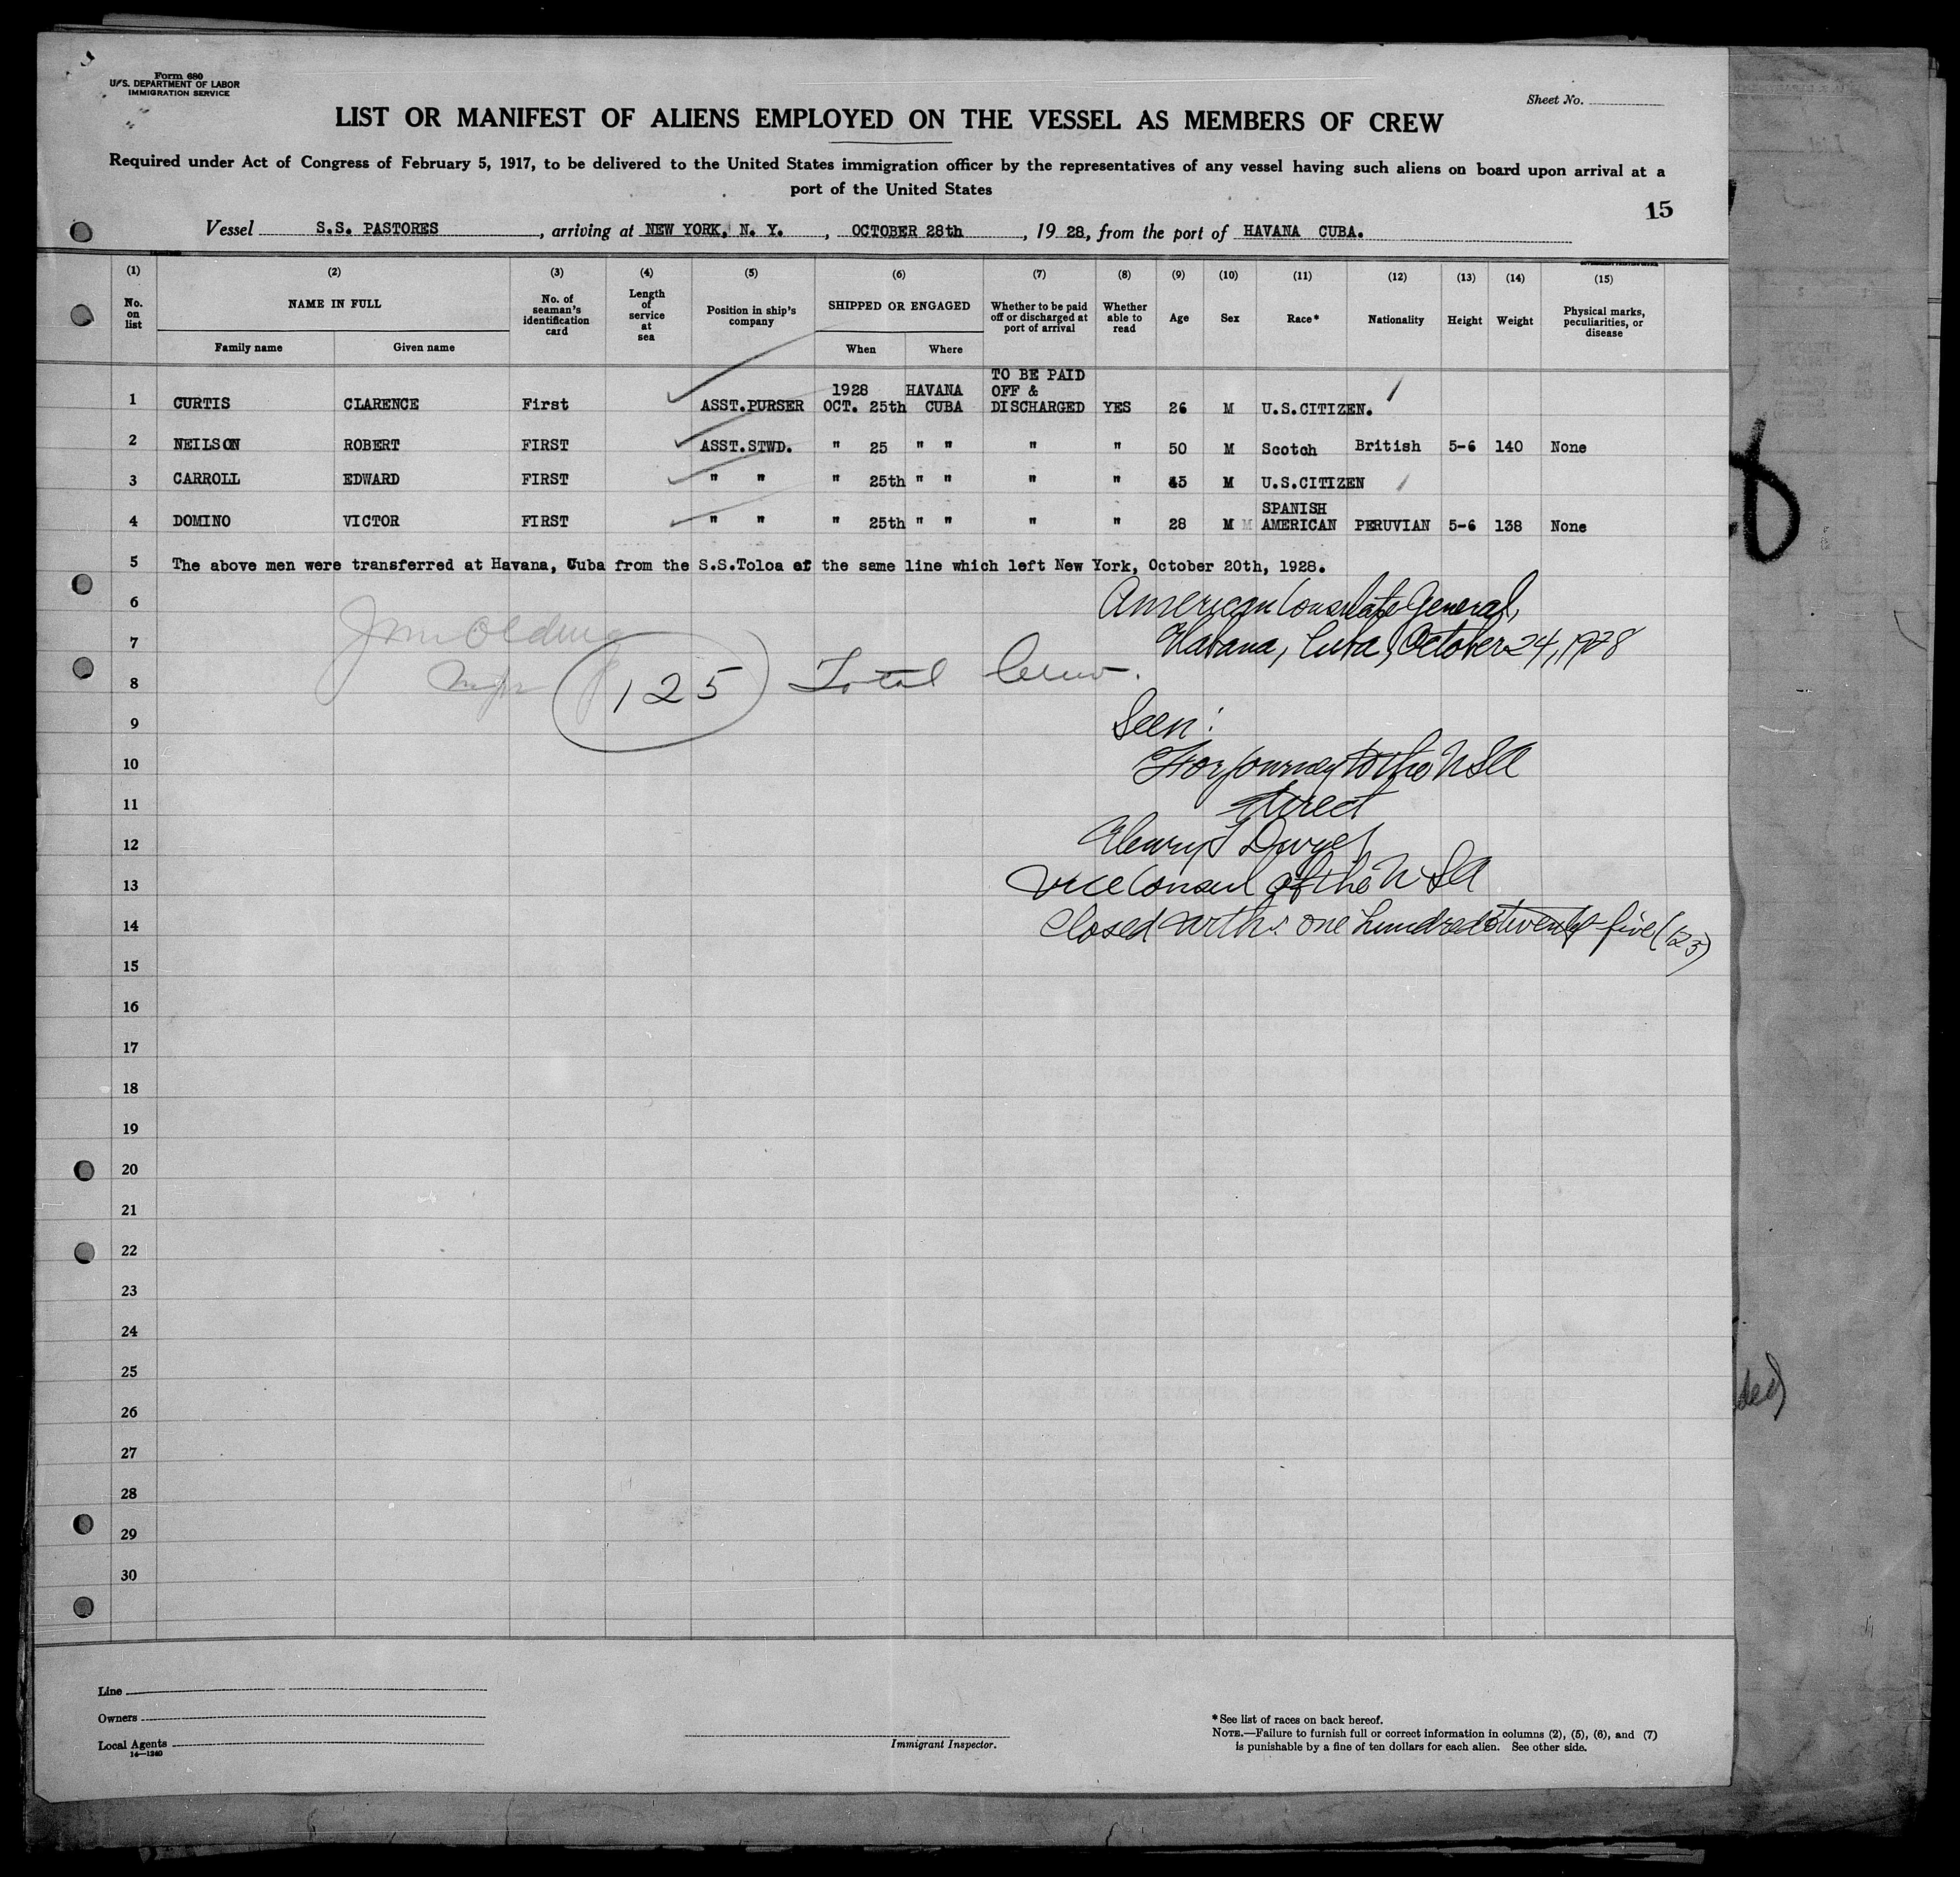 Form 680
U.S. DEPARTMENT OF LABOR
IMMIGRATION SERVICE
Sheet No.
LIST OR MANIFEST OF ALIENS EMPLOYED ON THE VESSEL AS MEMBERS OF CREW
Required under Act of Congress of February 5, 1917, to be delivered to the United States immigration officer by the representatives of any vessel having such aliens on board upon arrival at a
port of the United States
15
Vessel S.S. PASTORES, arriving at NEW YORK, N. Y., OCTOBER 28th, 1928, from the port of HAVANA CUBA.
(1) (2) (3) (4) (5) (6) (7) (8) (9) (10) (11) (12) (13) (14) (15)
No. on list NAME IN FULL No. of seaman's identification card Length of service at sea Position in ship's company SHIPPED OR ENGAGED Whether to be paid off or discharged at port of arrival Whether able to read Age Sex Race* Nationality Height Weight Physical marks, peculiarities, or disease
Family name Given name When Where
1 CURTIS CLARENCE First ASST.PURSER 1928 OCT. 25th HAVANA CUBA TO BE PAID OFF & DISCHARGED YES 26 M U.S.CITIZEN.
2 NEILSON ROBERT FIRST ASST.STWD. " 25 " " " " 50 M Scotch British 5-6 140 None
3 CARROLL EDWARD FIRST " " " 25th " " " " 45 M U.S.CITIZEN
4 DOMINO VICTOR FIRST " " " 25th " " " " 28 M M SPANISH AMERICAN PERUVIAN 5-6 138 None
5 The above men were transferred at Havana, Cuba from the S.S.Toloa of the same line which left New York, October 20th, 1928.
6 American Consulate General,
7 Havana, Cuba, October 24, 1928
8 125 Total Crew.
9 Seen:
10 For journey to the USA
11 direct
12 Henry
13 Vice Consul of the USA
14 Closed with: one hundred & twenty-five (125)
15
16
17
18
19
20
21
22
23
24
25
26
27
28
29
30
Line
Owners
Local Agents
14—1240
Immigrant Inspector.
* See list of races on back hereof.
NOTE.—Failure to furnish full or correct information in columns (2), (5), (6), and (7)
is punishable by a fine of ten dollars for each alien. See other side.